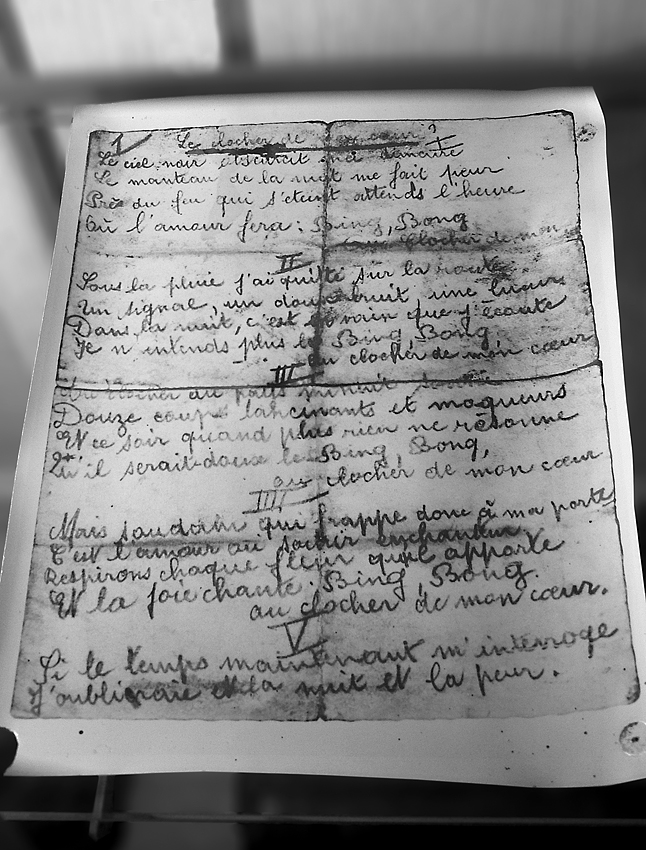 1 Le clocher de mon cœur ?
I
Le ciel noir obscurcit ma demeure
Le manteau de la nuit me fait peur
Près du feu qui s'éteint attends l'heure
Où l'amour fera : Bing, Bong
au Clocher de mon
II
Sous la pluie j'ai quitté sur la route
Un signal, un doux bruit une lueur
Dans la nuit, c'est en vain que j'écoute
Je n'intends plus le Bing, Bong
au clocher de mon cœur
III
Au clocher du pays minuit sonne
Douze coups lancinants et moqueurs
Et ce soir quand plus rien ne résonne
Qu'il serait doux le Bing, Bong,
au clocher de mon cœur
IIII
Mais soudain qui frappe donc à ma porte
C'est l'amour au sourir enchanteur
Respirons chaque fleur qu'il apporte
Et la joie chante : Bing Bong.
au clocher de mon cœur.
V
Si le temps maintenant m'interroge
J'oublieraie et la nuit et la peur.